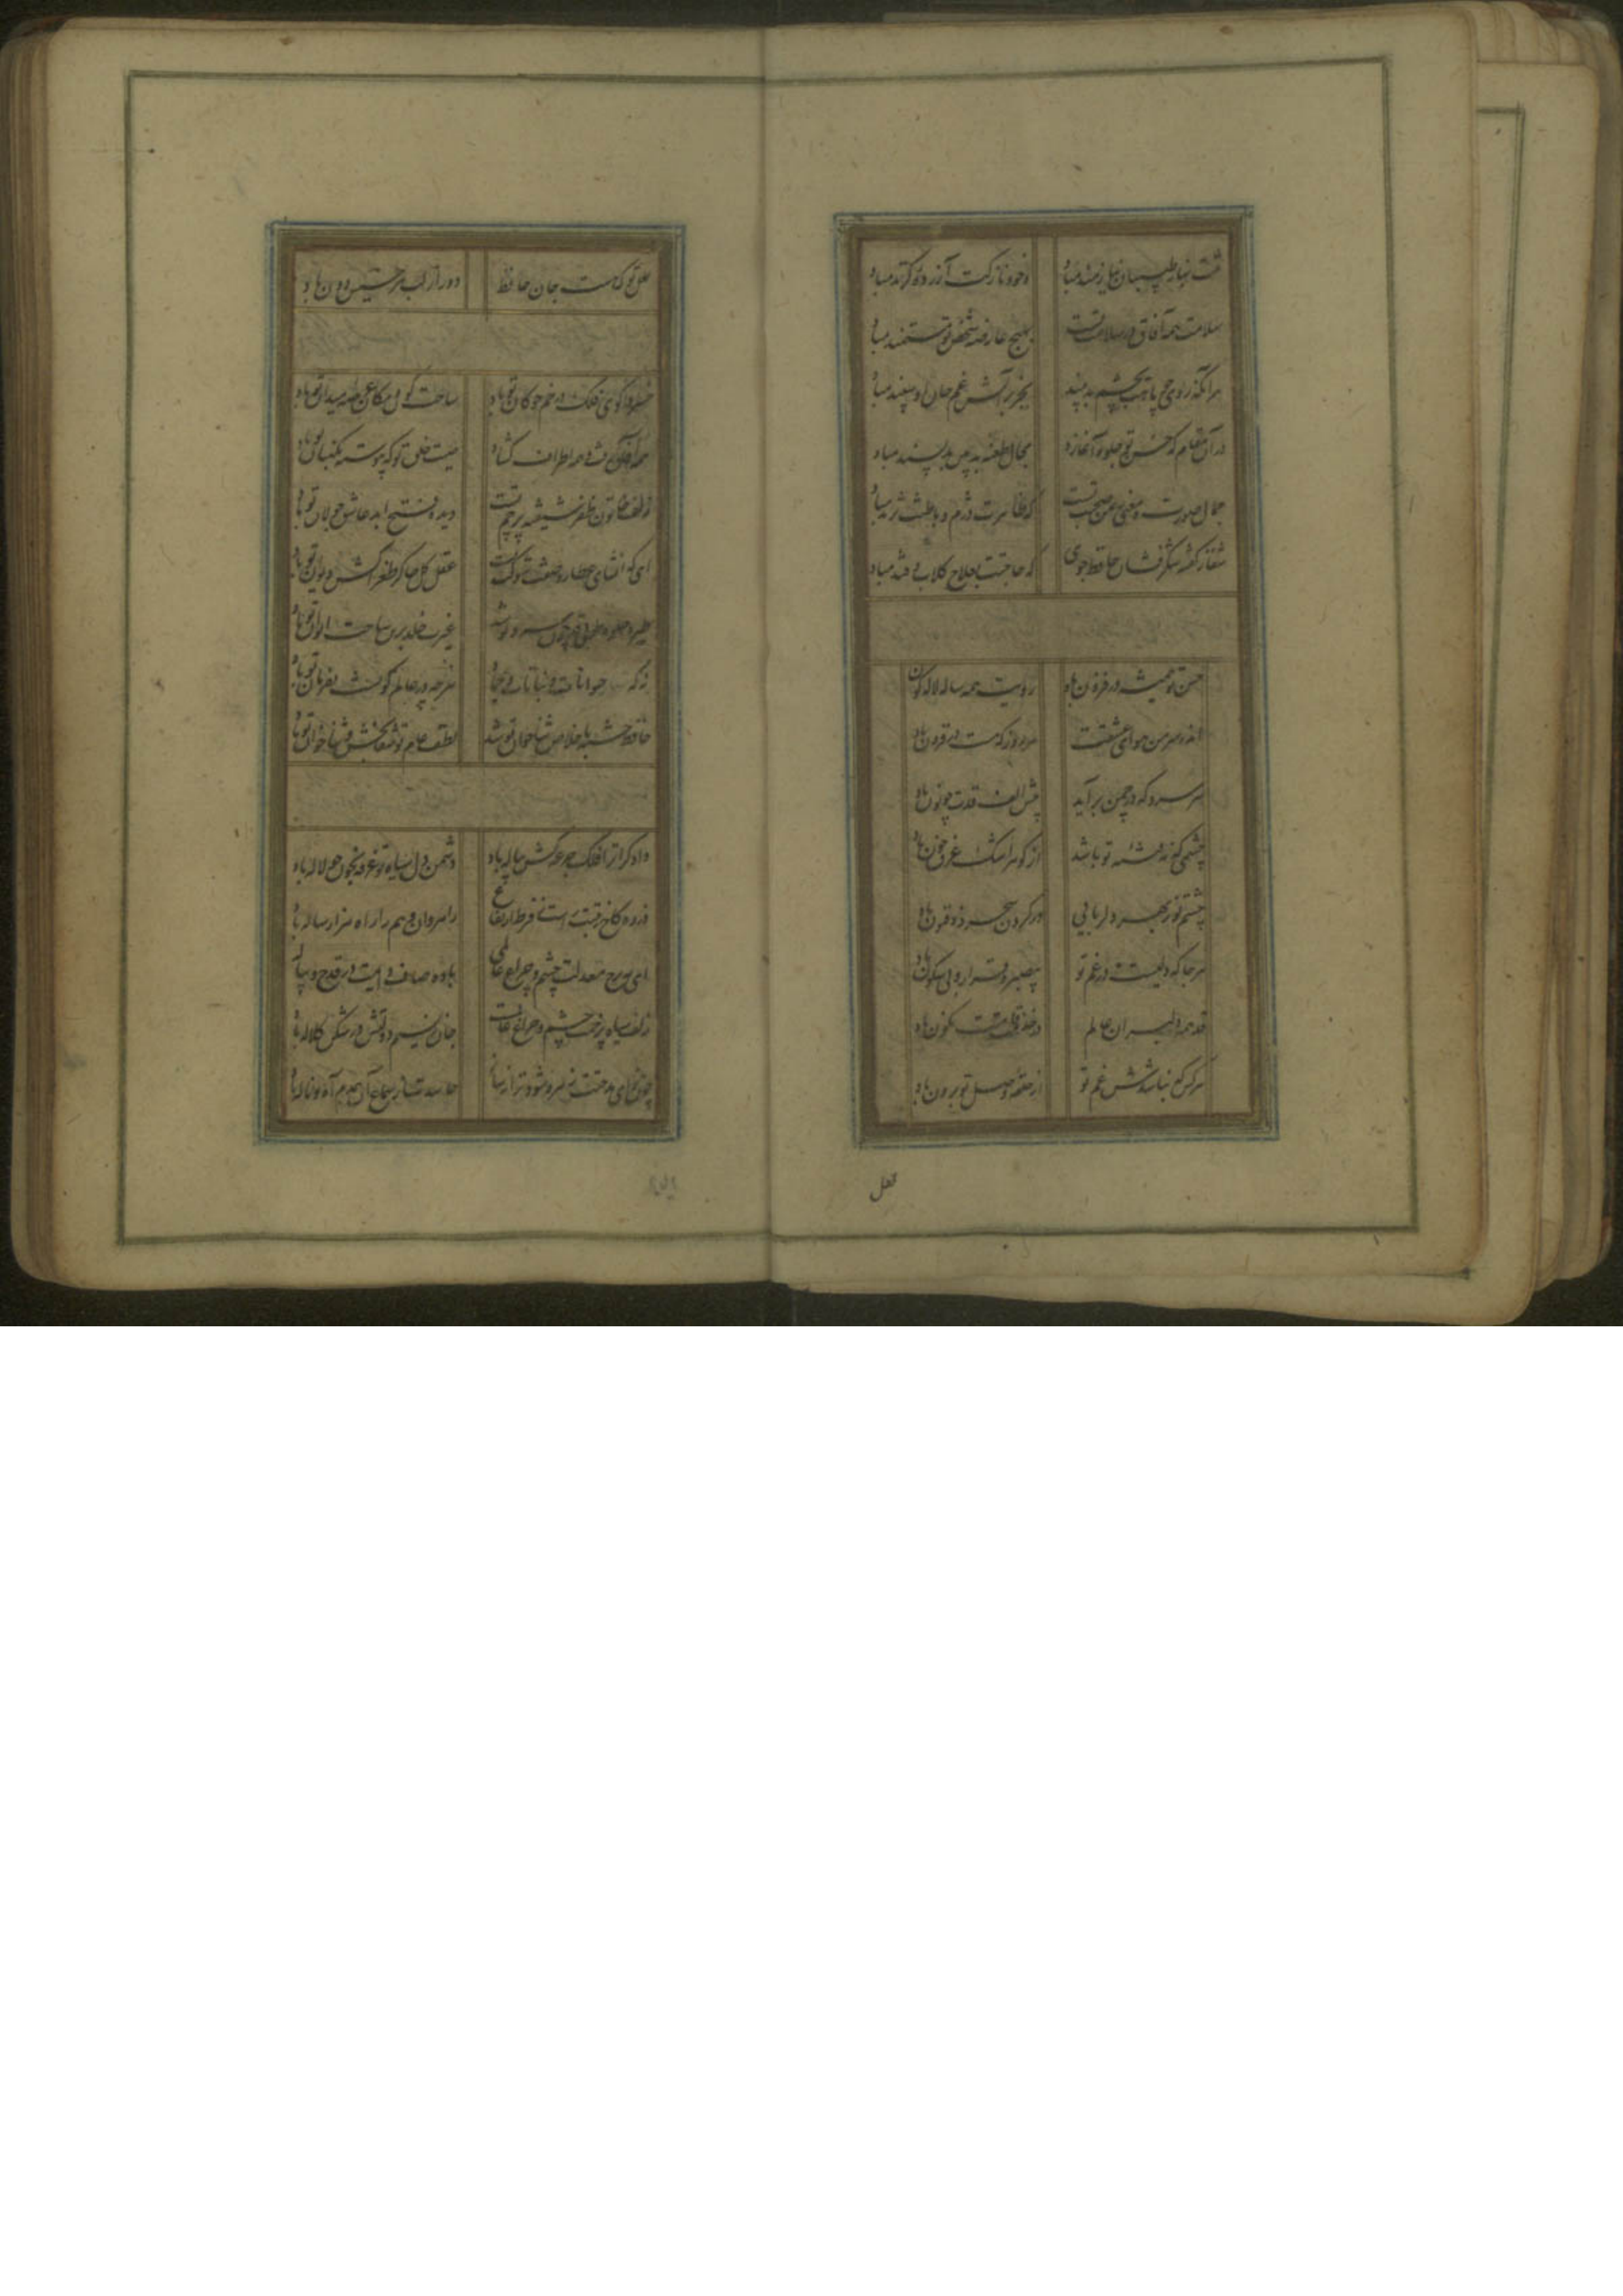 تنت بناز طبیبان نیازمند مباد وجود نازکت آزرده گزند مباد
سلامت همه آفاق در سلامت تست بهیچ عارضه شخص تو مستمند مباد
هر آنکه روی چو ماهت بچشم بد بیند بجز بر آتش غم جان او سپند مباد
در آن مقام که حسن تو جلوه آغازد مجال طعنه بدبین بدپسند مباد
جمال صورت و معنی ز یمن صحت تست که ظاهرت دژم و باطنت نژند مباد
شفا ز گفته شکرفشان حافظ جوی که حاجتت بعلاج گلاب و قند مباد
حسن تو همیشه در فزون باد رویت همه ساله لاله گون
اندر سر من هوای عشقت هر روز که هست در فزون باد
هر سرو که در چمن برآید پیش الف قدت چو نون باد
چشمی که نه فتنه تو باشد از گوهر اشک غرق خون باد
چشم تو ز بهر دلربایی در کردن سحر ذوفنون باد
هر جا که دلیست در غم تو بیصبر و قرار و بی سکون باد
قد همه دلبران عالم در خدمت قامتت نگون باد
هر کس که نباشدش غم تو از حلقه وصل تو برون باد
لعل
لعل تو که هست جان حافظ دور از لب هر خسیس دون باد
خسروا گوی فلک در خم چوگان تو باد ساحت کون و مکان عرصه میدان تو باد
همه آفاق گرفت و همه اطراف گشاد صیت خلق تو که پیوسته نگهبان تو باد
زلف خاتون ظفر شیفته پرچم تست دیده فتح ابد عاشق جولان تو باد
ای که انشای عطارد صفت شوکت تست عقل کل چاکر طغراکش دیوان تو باد
طیره جلوه طوبی قد چون سرو تو شد غیرت خلد برین ساحت ایوان تو باد
نه که حیوانات و نباتات و جماد هرچه در عالم کونست بفرمان تو باد
حافظ خسته باخلاص ثناخوان تو شد لطف عام تو شفابخش ثناخوان تو باد
دادگرا ترا فلک جرعه کش پیاله باد دشمن دل سیاه تو غرقه بخون چو لاله باد
ذروه کاخ رتبتت راست ز فرط ارتفاع راهروان وهم را راه هزار ساله باد
ای مه برج معدلت چشم و چراغ عالمی باده صاف دایمت در قدح و پیاله
زلف سیاه پرخمت چشم و چراغ عالمست جان نسیم دولتش در شکن کلاله باد
چون بهوای مدحتت زهره شود ترانه ساز حاسدت از سماع آن همدم آه و ناله باد